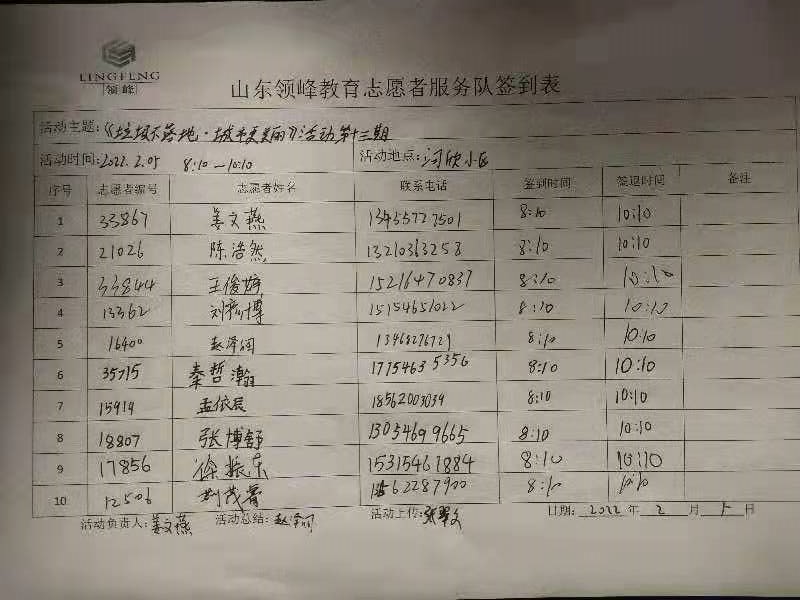 LINGFENG
领峰
山东领峰教育志愿者服务队签到表
活动主题:《垃圾不落地·城市更美丽》活动第十三期
活动时间:2022.2.05 8:10—10:10 活动地点:河欣小区
序号 志愿者编号 志愿者姓名 联系电话 签到时间 签退时间 备注
1 33867 姜文燕 13455727501 8:10 10:10
2 21026 陈浩然 13210363258 8:10 10:10
3 33844 王俊婷 15216470837 8:10 10:10
4 13362 刘彦博 15154651022 8:10 10:10
5 16400 赵泽润 13468276729 8:10 10:10
6 35715 秦哲瀚 17754635356 8:10 10:10
7 15914 孟依辰 18562003039 8:10 10:10
8 18807 张博舒 13054699665 8:10 10:10
9 17856 徐振东 15315461884 8:10 10:10
10 12506 8:10 10:10
活动负责人:姜文燕 活动总结:赵泽润 活动上传: 日期:2022年2月5日